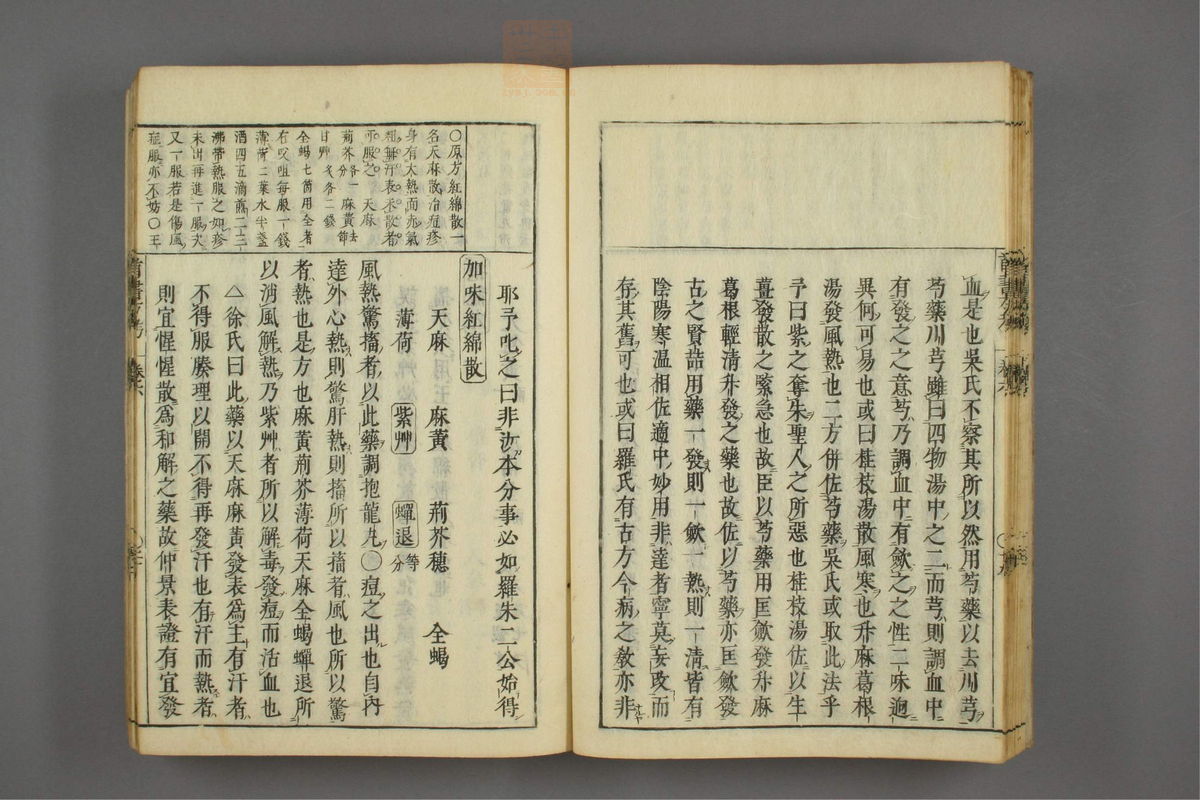 血是也吳氏不察其所以然用芍藥以去川芎
芍藥川芎雖曰四物湯中之二而芎則調血中
有發之之意芍乃調血中有歛之之性二味迥
異何可易也或曰桂枝湯散風寒也升麻葛根
湯發風熱也二方併佐芍藥吳氏或取此法乎
予曰紫之奪朱聖人之所惡也桂枝湯佐以生
薑發散之緊急也故臣以芍藥用匡歛發升麻
葛根輕清升發之藥也故佐以芍藥亦匡歛發
古之賢詰用藥一發則一歛一熱則一清皆有
陰陽寒温相佐適中妙用非達者寧莫妄改而
存其舊可也或曰羅氏有古方今病之敎亦非
耶予叱之曰非汝本分事必如羅朱二公始得
加味紅綿散
天麻 麻黃 荊芥穗 全蝎
薄荷 紫艸 蟬退 等分
風熱驚搐者以此藥調抱龍丸〇痘之出也自內
達外心熱則驚肝熱則搐所以搐者風也所以驚
者熱也是方也麻黃荊芥薄荷天麻全蝎蟬退所
以消風解熱乃紫艸者所以解毒發痘而活血也
△徐氏曰此藥以天麻麻黃發表爲主有汗者
不得服腠理以開不得再發汗也有汗而熱者
則宜惺惺散爲和解之藥故仲景表證有宜發
〇原方紅綿散一
名天麻散治痘疹
身有大熱而赤氣
粗無汗表未散者
可服之 天麻
荊芥各一分 麻黃去節
甘艸 各二錢
全蝎七箇用全者
右㕮咀每服一錢
薄荷二葉水半盞
酒四五滴煎二三
沸帶熱服之如疹
未出再進一服次
又一服若是傷風
症服亦不妨〇王